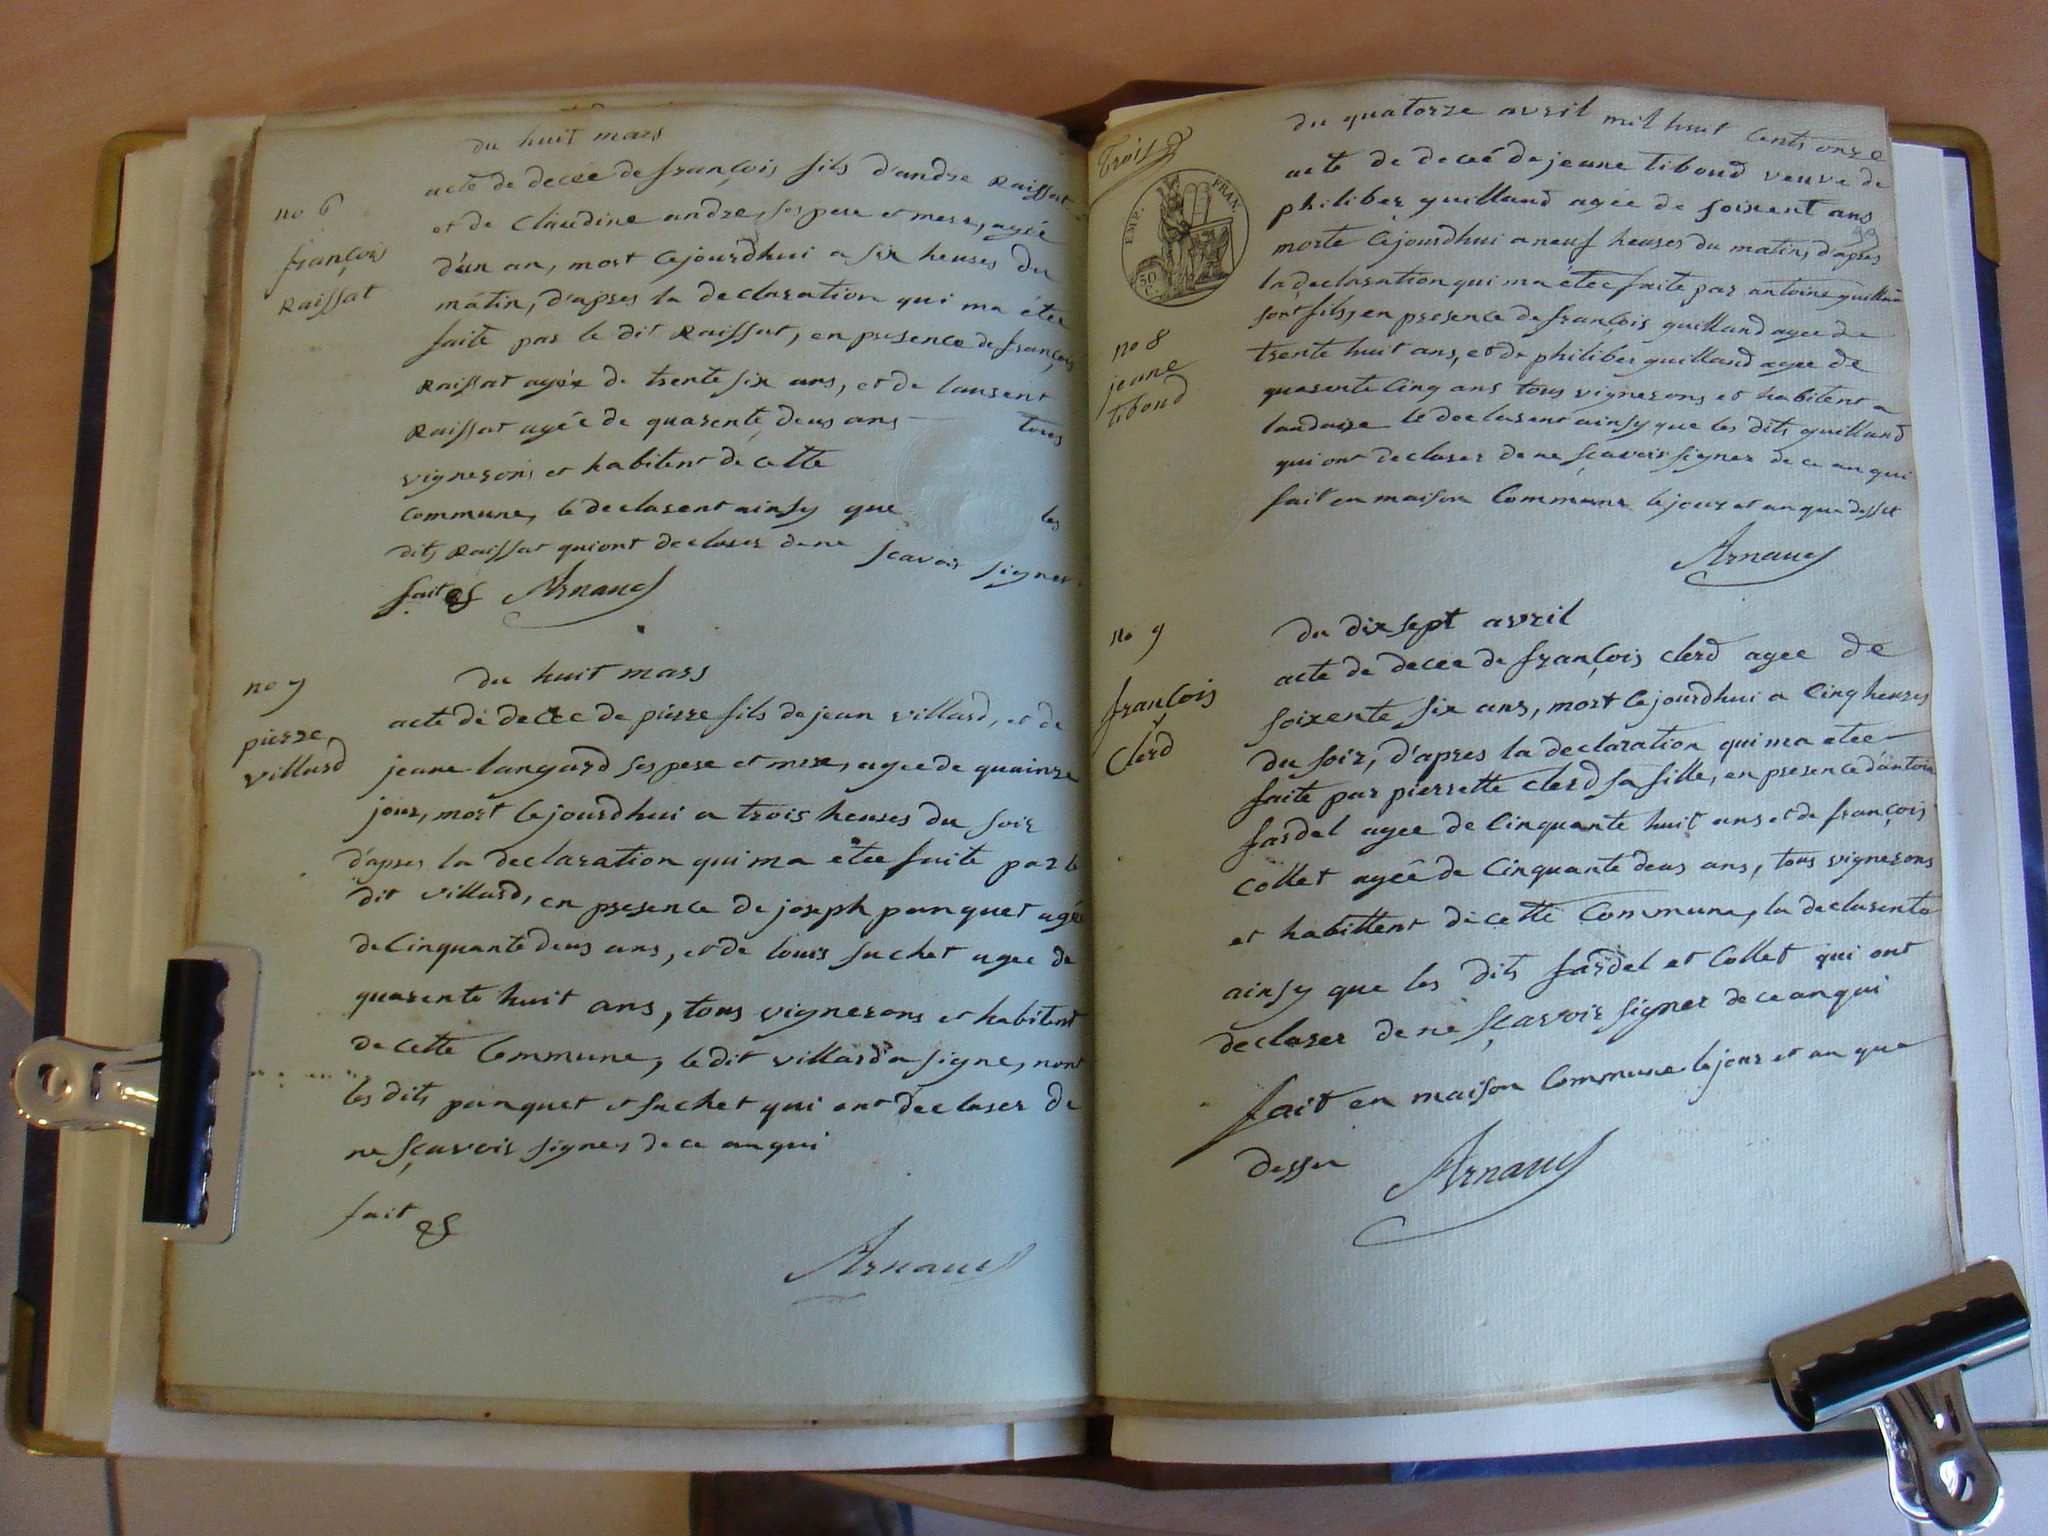 du huit mars
no 6
françois
Raissat
acte de decée de françois fils d'andre Raissat
et de Claudine andre, ses pere et mere, agée
d'un an, mort Cejourdhui a six heures du
matin, d'apres la declaration qui ma étée
faite par le dit Raissat, en presence de françois
Raissat agée de trente six ans, et de laurent
Raissat agée de quarente deus ans tous
vignerons et habitent de cette
Commune, le declarent ainsy que les
dits Raissat qui ont declarer de ne scavoir signer
fait & Arnaud
no 7
pierre
villard
du huit mars
acte de decée de pierre fils de jean villard, et de
jeane langard ses pere et mere, agee de quainze
jour, mort Cejourdhui a trois heures du soir
d'apres la declaration qui ma étée faite par le
dit villard, en presence de joseph panquet agée
de Cinquante deus ans, et de louis suchet agee de
quarente huit ans, tous vignerons et habitent
de cette Commune, le dit villard a signe, nont
les dits panquet et suchet qui ont declarer de
ne sçavoir signer de ce anqui
fait &
Arnaud
Trois
EMP. FRAN.
50 C.
du quatorze avril mil huit Cents onze
no 8
jeane
tiboud
acte de decée de jeane tiboud veuve de
philiber guilland agée de soixent ans
99
morte Cejourdhui a neuf heures du matins d'apres
la declaration qui ma étée faite par antoine guilland
sont fils, en presence de françois guilland agee de
trente huit ans, et de philiber guilland agee de
quarente Cinq ans tous vignerons et habitent a
landaize le declarent ainsy que les dits guilland
qui ont declarer de ne sçavoir signer de ce anqui
fait en maison Commune le jour et an que dessus
Arnaud
no 9
françois
Clerd
du dix sept avril
acte de decée de françois clerd agee de
soixente six ans, mort Cejourdhui a Cinq heures
du soir, d'apres la declaration qui ma etée
faite par pierrette clerd sa fille, en presence d'antoine
fardel agee de Cinquante huit ans et de françois
Collet agée de Cinquante deus ans, tous vignerons
et habittent de cette Commune, la declarente
ainsy que les dits fardel et Collet qui ont
declarer de ne sçavoir signer de ce anqui
fait en maison Commune le jour et an que
dessu Arnaud